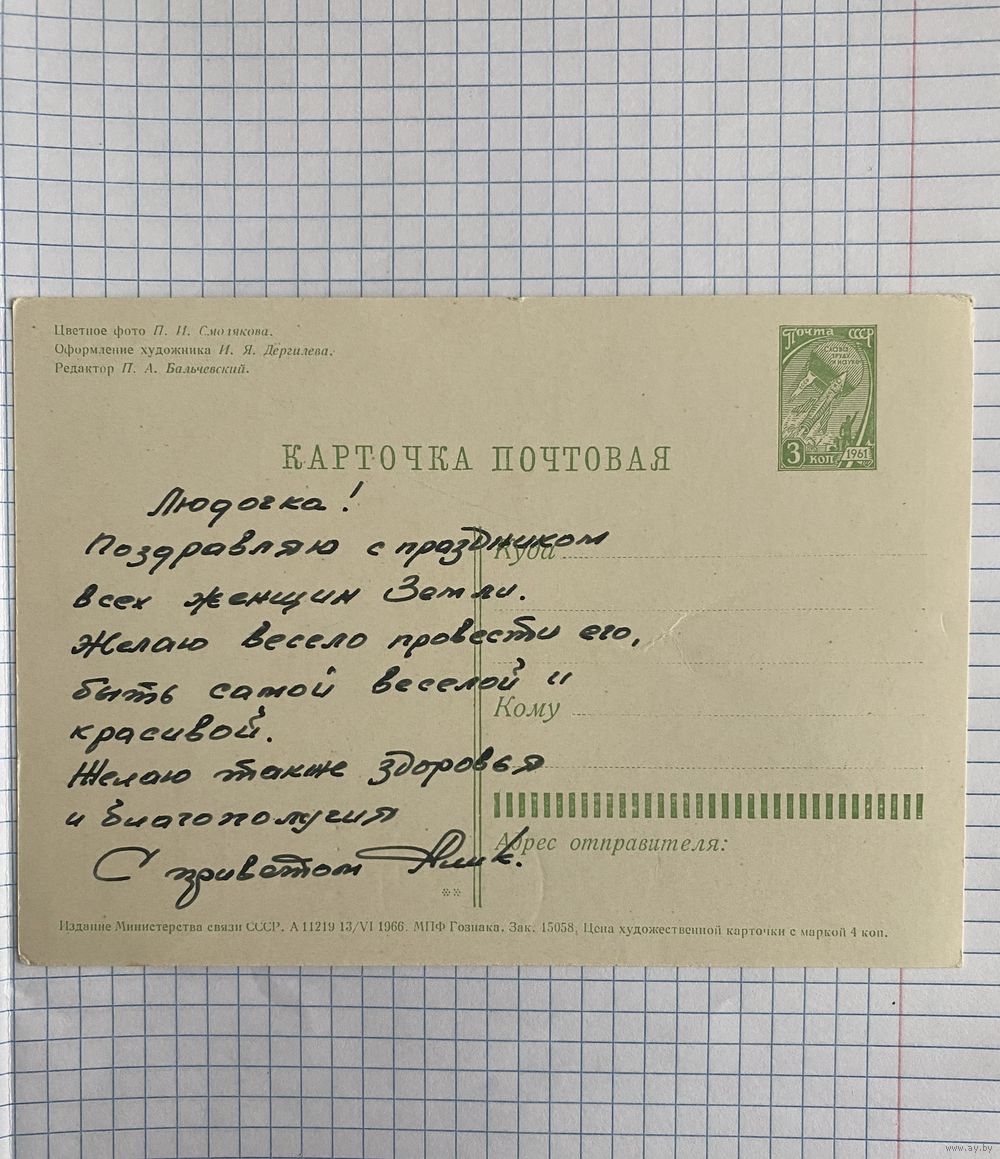 Цветное фото П. И. Смолякова.
Оформление художника И. Я. Дергилева.
Редактор П. А. Бальчевский.
Почта СССР
СЛАВА
ТРУДУ
И НАУКЕ
3 коп 1961
КАРТОЧКА ПОЧТОВАЯ
Людочка!
Поздравляю с праздником
всех женщин Земли.
Желаю весело провести его,
быть самой веселой и
красивой.
Желаю также здоровья
и благополучия
С приветом Алик.
Куда
Кому
Адрес отправителя:
Издание Министерства связи СССР. А 11219 13/VI 1966. МПФ Гознака. Зак. 15058. Цена художественной карточки с маркой 4 коп.
www.ay.by